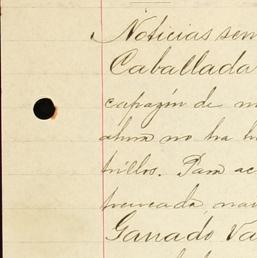 Noticias sem
Caballada
capazón de m
ahora no ha h
trillos. Para ac
Ganado Va